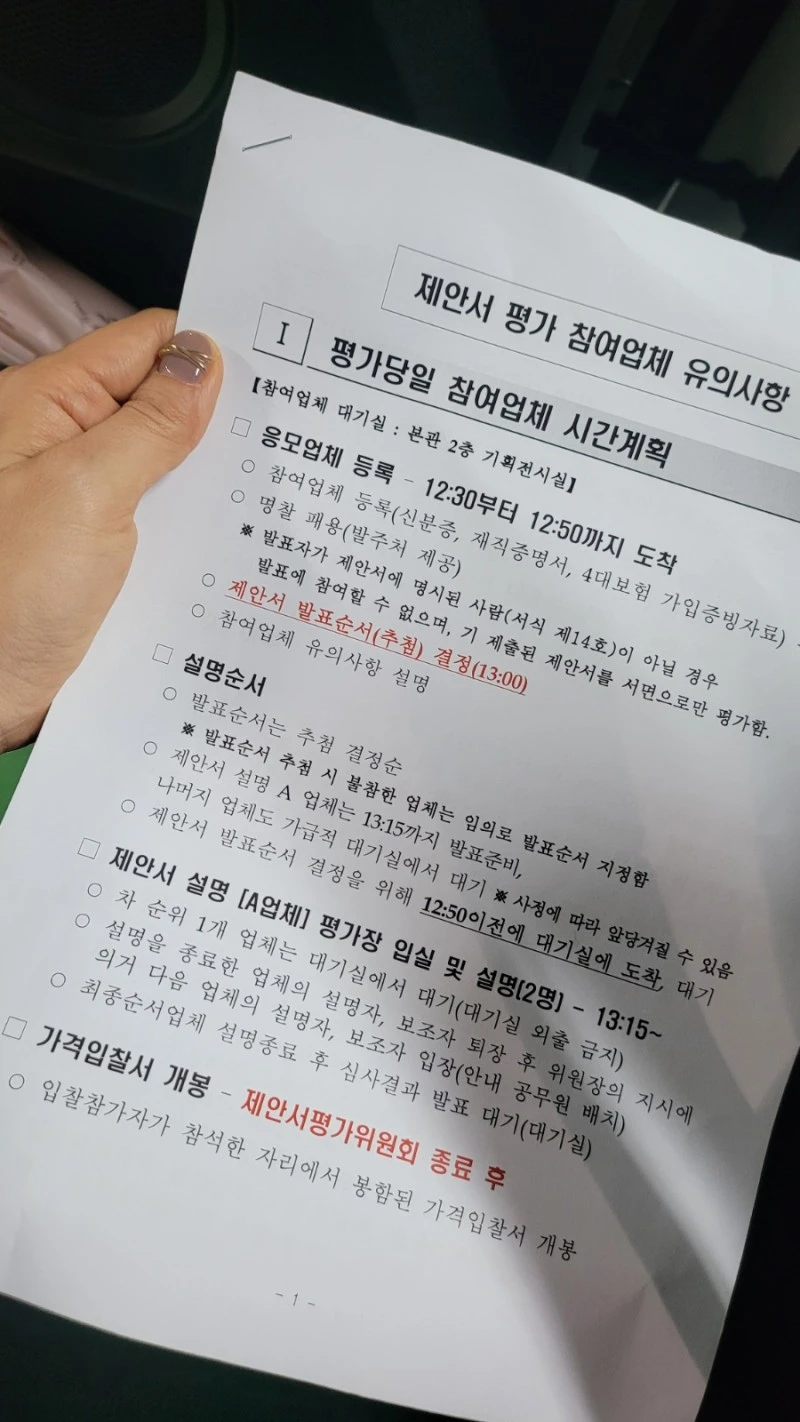 제안서 평가 참여업체 유의사항
I 평가당일 참여업체 시간계획
【참여업체 대기실 : 본관 2층 기획전시실】
□ 응모업체 등록 - 12:30부터 12:50까지 도착
○ 참여업체 등록(신분증, 재직증명서, 4대보험 가입증빙자료)
○ 명찰 패용(발주처 제공)
※ 발표자가 제안서에 명시된 사람(서식 제14호)이 아닐 경우
발표에 참여할 수 없으며, 기 제출된 제안서를 서면으로만 평가함.
○ 제안서 발표순서(추첨) 결정(13:00)
○ 참여업체 유의사항 설명
□ 설명순서
○ 발표순서는 추첨 결정순
※ 발표순서 추첨 시 불참한 업체는 임의로 발표순서 지정함
○ 제안서 설명 A 업체는 13:15까지 발표준비,
나머지 업체도 가급적 대기실에서 대기 ※ 사정에 따라 앞당겨질 수 있음
○ 제안서 발표순서 결정을 위해 12:50이전에 대기실에 도착, 대기
□ 제안서 설명 [A업체] 평가장 입실 및 설명(2명) - 13:15~
○ 차 순위 1개 업체는 대기실에서 대기(대기실 외출 금지)
○ 설명을 종료한 업체의 설명자, 보조자 퇴장 후 위원장의 지시에
의거 다음 업체의 설명자, 보조자 입장(안내 공무원 배치)
○ 최종순서업체 설명종료 후 심사결과 발표 대기(대기실)
□ 가격입찰서 개봉 - 제안서평가위원회 종료 후
○ 입찰참가자가 참석한 자리에서 봉함된 가격입찰서 개봉
- 1 -